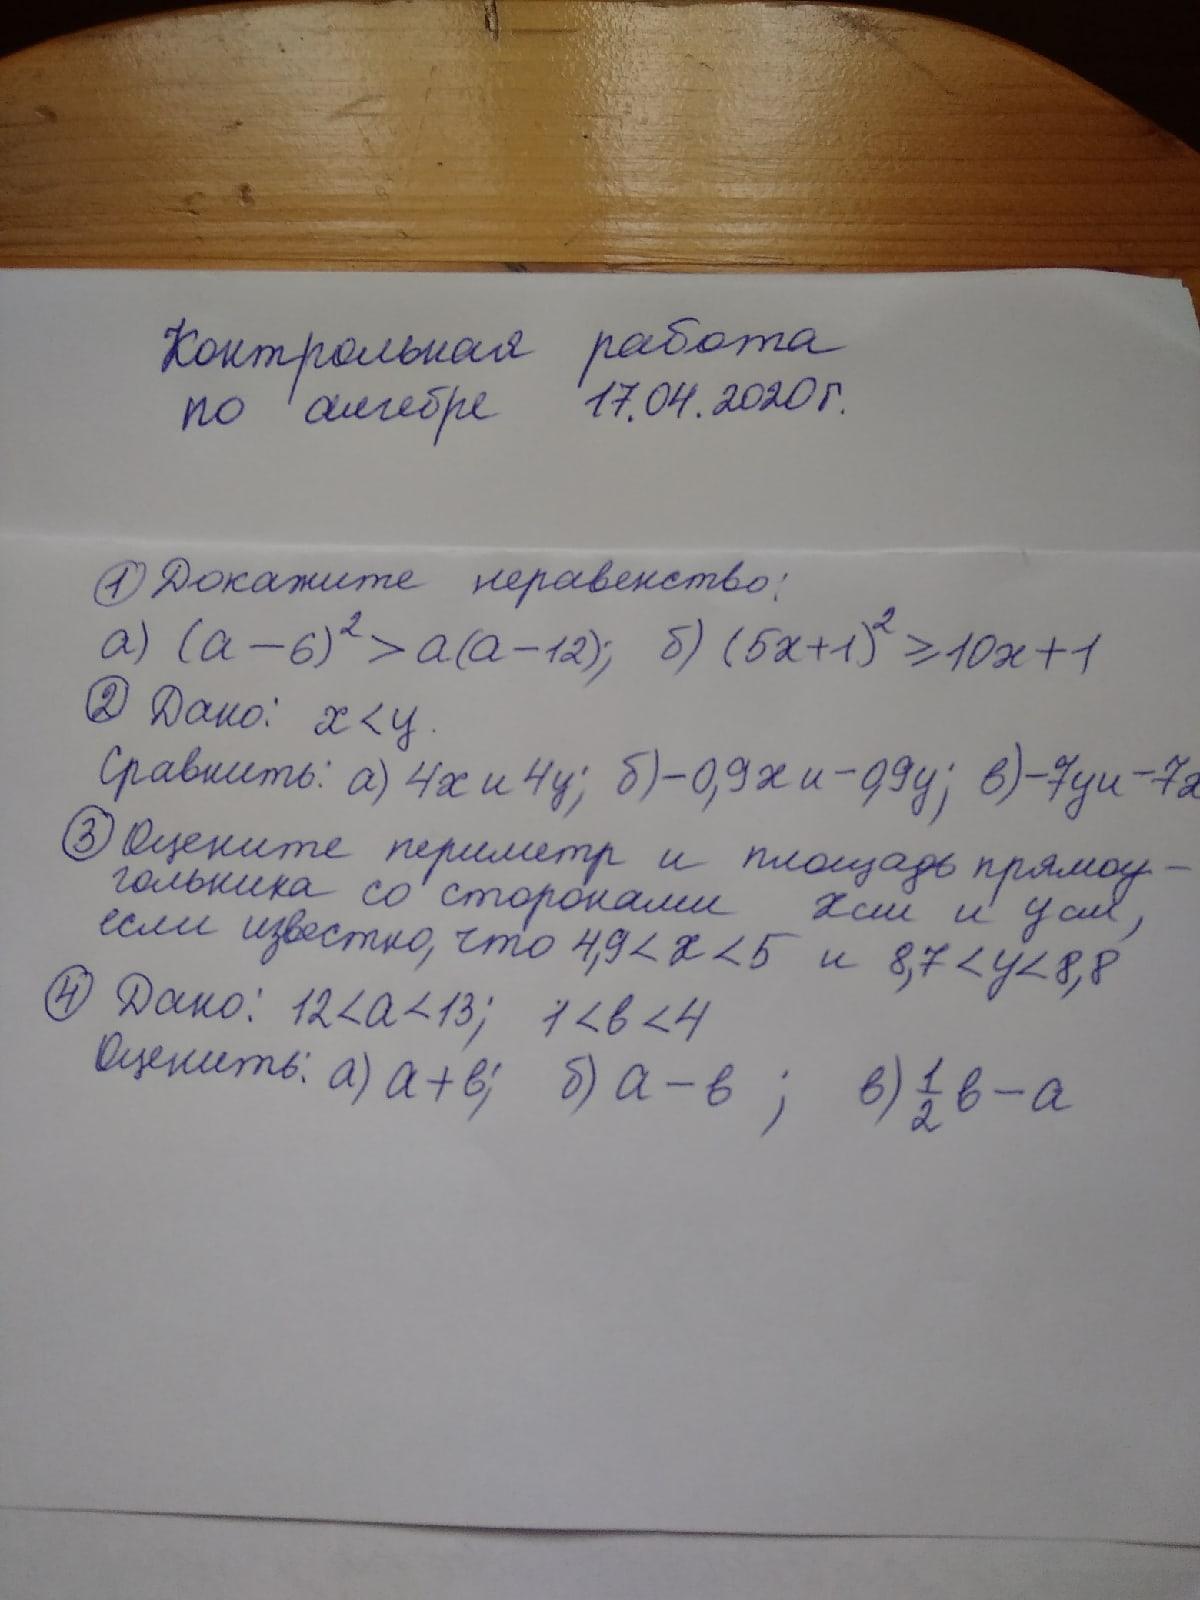 Контрольная работа
по алгебре 17.04.2020г.
① Докажите неравенство:
а) (а-6)²>а(а-12); б) (5х+1)²≥10х+1
② Дано: х<у.
Сравнить: а) 4х и 4у; б) -0,9х и -0,9у; в) -7у и -7х
③ Оцените периметр и площадь прямоу-
гольника со сторонами х см и у см,
если известно, что 4,9<х<5 и 8,7<у<8,8
④ Дано: 12<а<13; 1<в<4
Оценить: а) а+в; б) а-в; в) 1/2 в-а